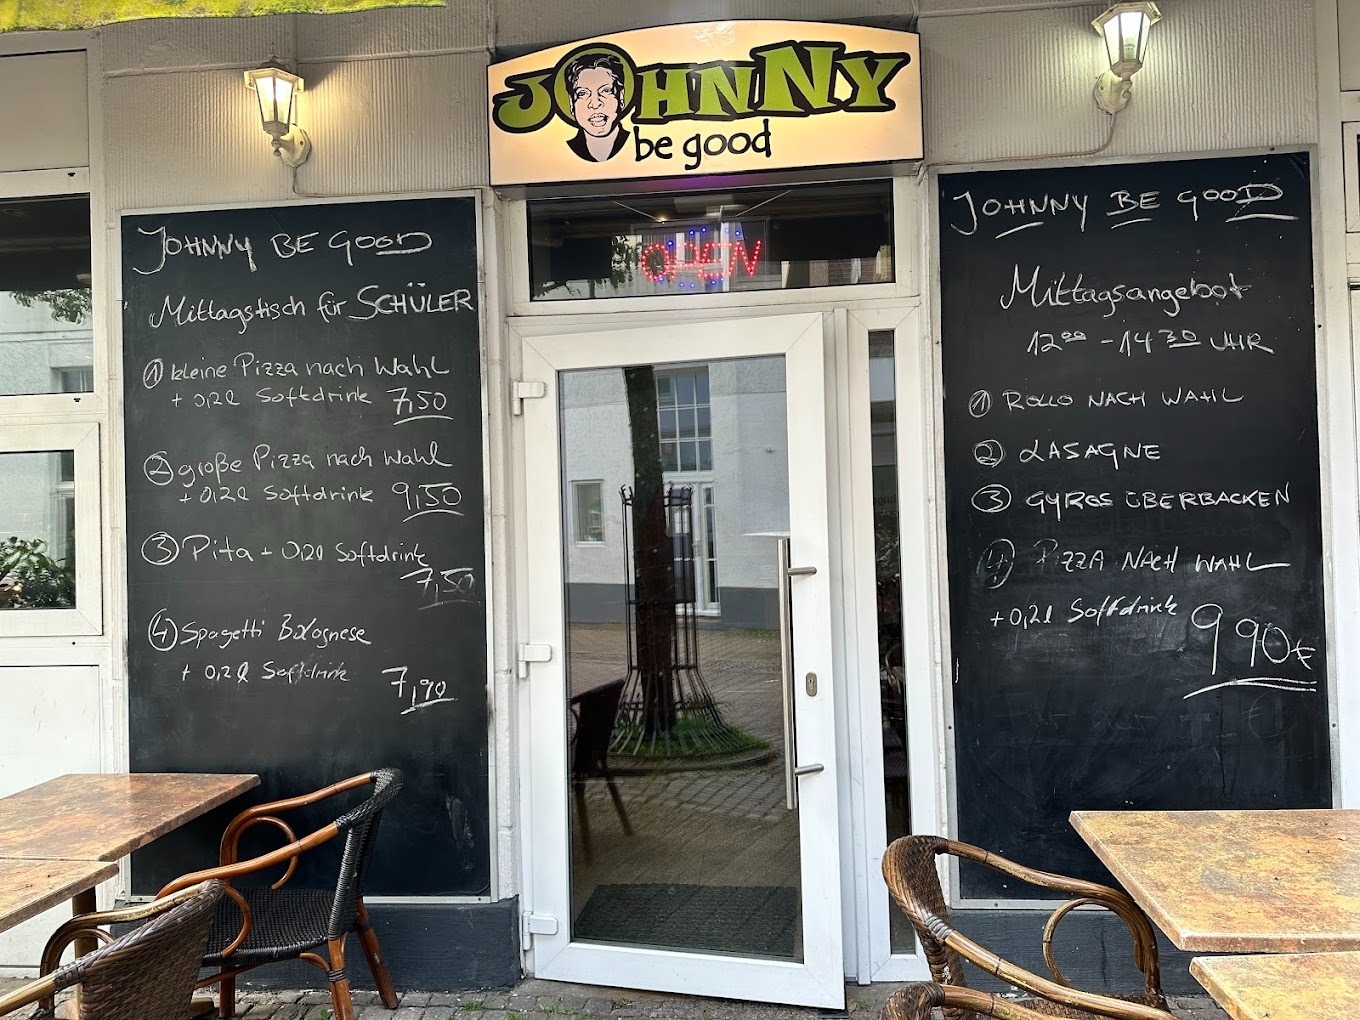 JOHNNY
be good
OPEN
JOHNNY BE GOOD
Mittagstisch für SCHÜLER
① kleine Pizza nach Wahl
+ 0,2l Softdrink 7,50
② große Pizza nach Wahl
+ 0,2l Softdrink 9,50
③ Pita + 0,2l Softdrink
7,50
④ Spagetti Bolognese
+ 0,2l Softdrink
7,90
JOHNNY BE GOOD
Mittagsangebot
12⁰⁰ - 14³⁰ UHR
① ROLLO NACH WAHL
② LASAGNE
③ GYROS ÜBERBACKEN
④ PIZZA NACH WAHL
+ 0,2l Softdrink
9 90€